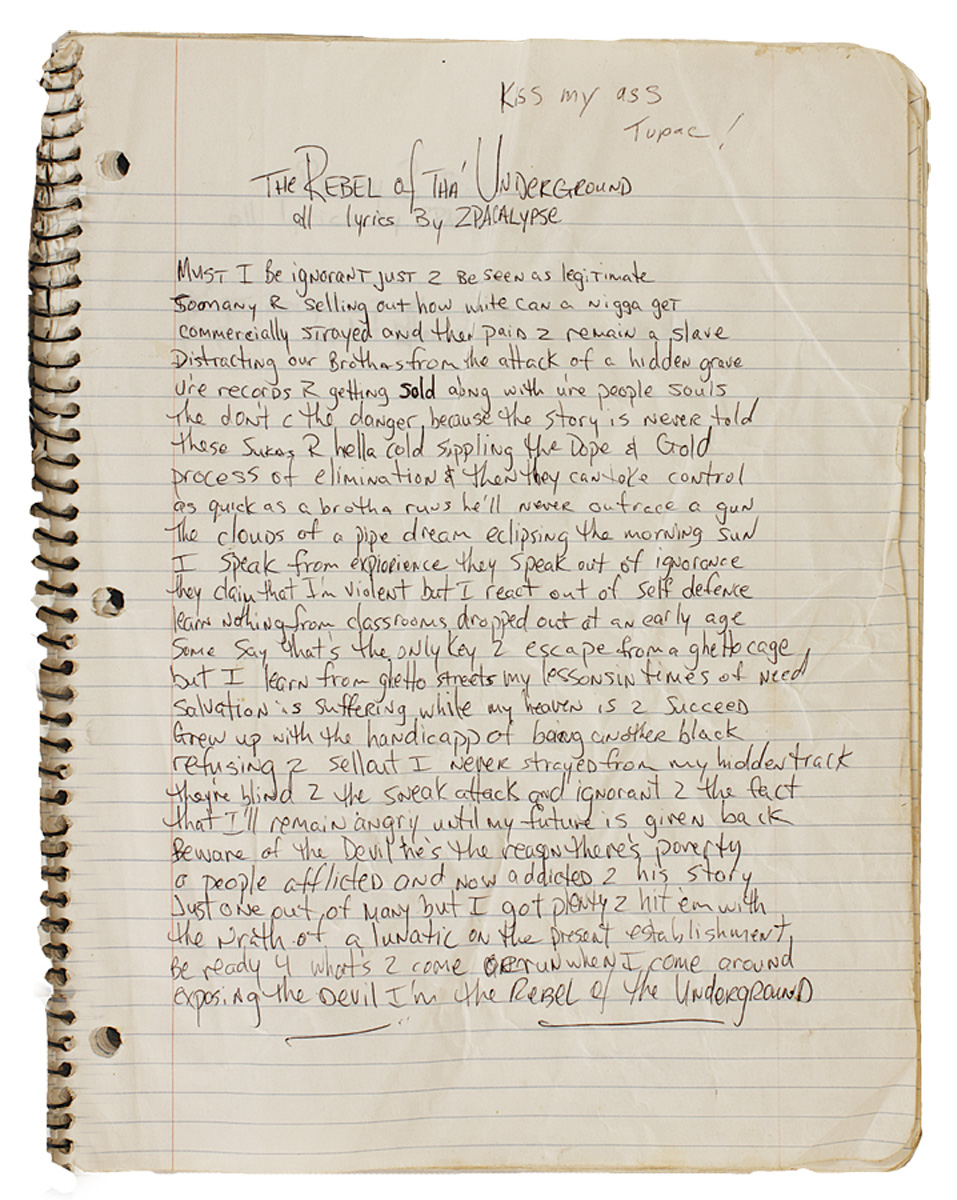 Kiss my ass
Tupac!
THE REBEL of THA' UNDERGROUND
all lyrics By 2PACALYPSE
MUST I Be ignorant just 2 Be seen as legitimate
Soomany R selling out how white can a nigga get
commercially strayed and then paid 2 remain a slave
Distracting our Brothas from the attack of a hidden grave
U're records R getting sold along with u're people souls
the don't c the danger because the story is never told
these Sukas R hella cold sippling the Dope & Gold
process of elimination & then they can take control
as quick as a brotha runs he'll never outrace a gun
the clouds of a pipe dream eclipsing the morning sun
I speak from expiorience they speak out of ignorance
they claim that I'm violent but I react out of self defence
learn nothing from classrooms dropped out at an early age
Some say that's the only key 2 escape from a ghetto cage
but I learn from ghetto streets my lessons in times of need
Salvation is suffering while my heaven is 2 succeed
Grew up with the handicapp of being another black
refusing 2 sellout I never strayed from my hidden track
they're blind 2 the sneak attack and ignorant 2 the fact
that I'll remain angry until my future is given back
Beware of the Devil he's the reason there's poverty
a people afflicted and now addicted 2 his story
Just one out of many but I got plenty 2 hit 'em with
the wrath of a lunatic on the present establishment
Be ready 4 what's 2 come or run when I come around
exposing the Devil I'm the Rebel of the Underground